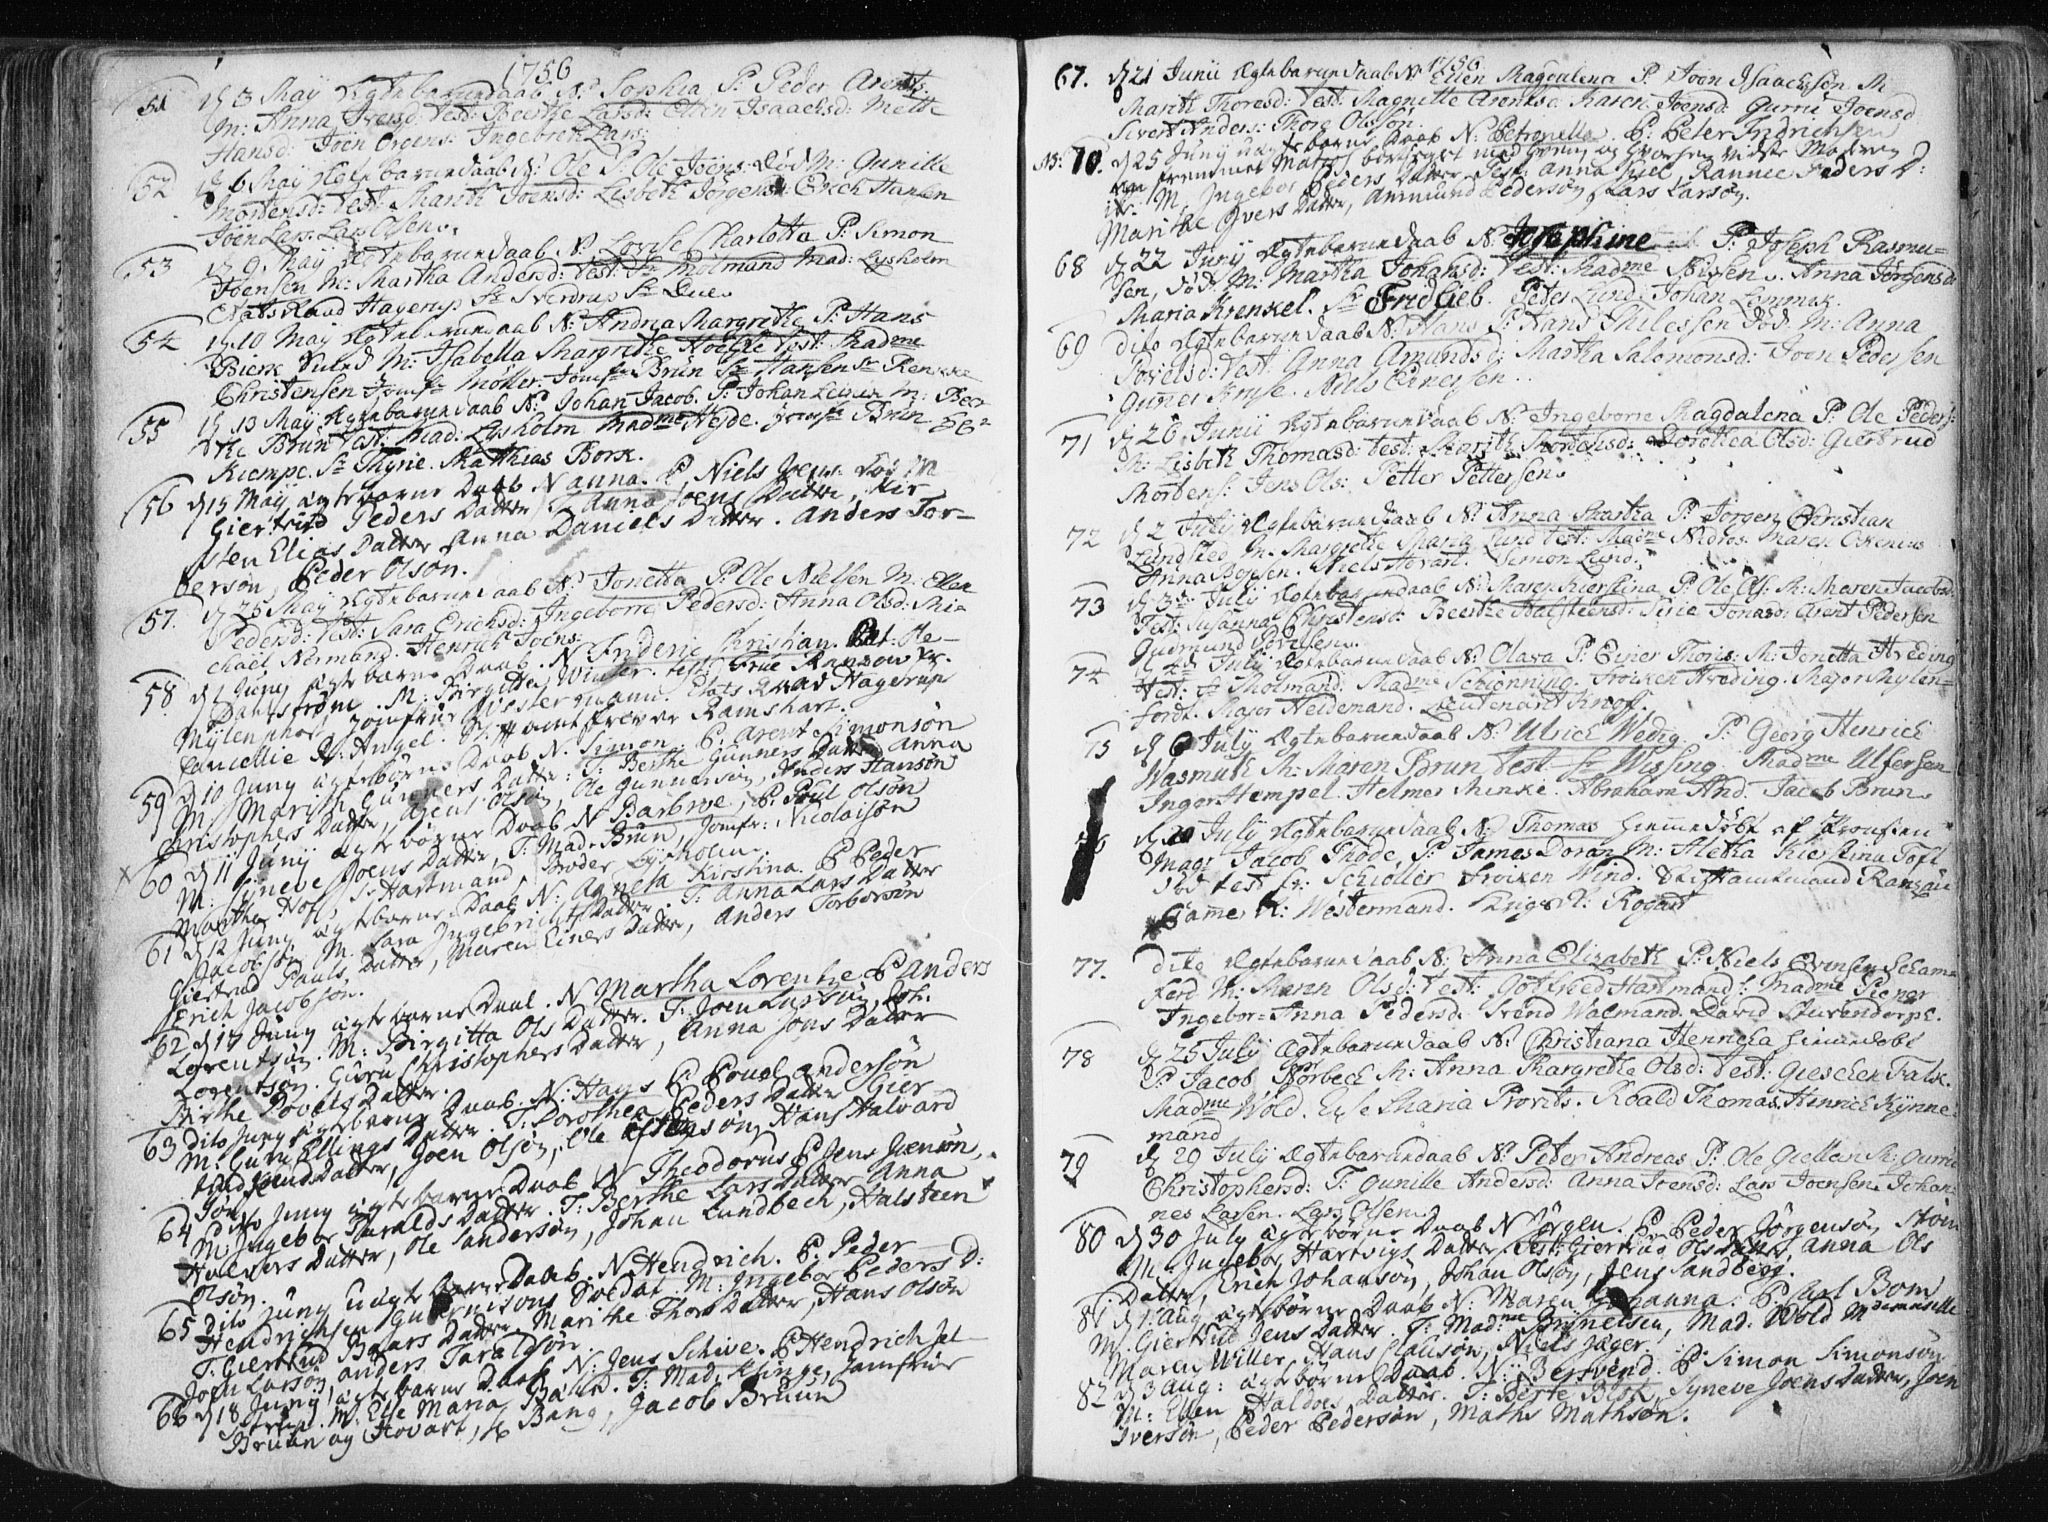 1756
51 d 3 May Ægtebarn daab N. Sophia P: Peder Arents:
M: Anna Iversd: Test: Beerthe Larsd: Ellen Isaachsd: Mette
Hansd: Joen Örgens: Ingebret Lars:
52 d 6 May Ægtebarn daab N: Ole P. Ole Joens: Död M: Gunille
Mortensd: Test: Marith Joensd: Lisbeth Jörgensd: Erich Hansen
Joen Lars: Lars Olsen.
53 d 9 May Ægtebarn daab N. Lovise Charlotta P: Simon
Joensen M: Martha Andersd: Test: Sr Molmand Mad: Lysholm
Etats Raad Hagerup Sr Sverdrup Sr Due.
54 d 10 May Ægtebarn daab N: Andrea Margrethe P: Hans
Bierk M: Isabella Margrethe Test: Madme
Christensen Jomfr Möller. Jomfr Brun Sr Hansen Sr
55 d 13 May Ægtebarn daab N. Johan Jacob. P: Johan M: Beer
the Brun Test: Mad: Lysholm Madme Hejde. Jomfr Brun
Kiempe. Sr Thyrie. Matthias Bork.
56 d 15 May ægtebarne Daab N Anna. P. Niels Jens: död M
Giertrud Peders Datter T Anna Joens Datter, Kir
sten Elias Datter Anna Daniels Datter. Anders Tor-
bersön, Peder Olsön.
57. d 26 May Ægtebarn daab N. Jonetta P: Ole Nielsen M: Ellen
Pedersd: Test: Sara Ericksd: Ingeborre Pedersd: Anna Olsd: Mi-
chäel Normand. Henrich Joens:
58 d 1 Juny ægtebarne Daab. N Frideric Christian. Pat: Ole
Dahlström. M: Birgitta Winter. Test: Frue Ranzow Fr.
Mylenphort Jomfrue Westermann. Etats Raad Hagerup
Cancellie R: Angel. Ramshart.
59 d 10 Juny ægtebörne Daab N. Simon. P. Arent Simonsön
M: Marith Gunners Datter: T: Berthe Gunners Datter Anna
Christophers Datter, Arent Olsön, Ole Gunnersön, Anders Hansön
60 d 11 Juny ægtebörne Daab N Barbroe, P. Poul Olsön
M: Syneve Joens Datter, T: Mad. Brun, Jomfr: Nicolaisön
Martha Hof, Sr Hartmand, Broder Lysholm.
61 d 12 Juny ægtebarne Daab N: Agneta Kirstina. P Peder
Jacobsön M: Sara Ingebrichts Datter. T: Anna Lars Datter
Giertrud Pauls Datter, Maren Einers Datter, Anders Torborsön
Erich Jacobsön.
62 d 17 Juny ægtebarne Daab. N Martha Lorentze P Anders
Lorentsön. M: Birgitta Ols Datter. T: Joen Larsön, Joh.
Lorentsön. Guru Christophers Datter, Anna Jons Datter
Birthe Povels Datter.
63 dito Juny ægtebarne Daab. N: Hans P. Poul Andersön
M: Guru Ellings Datter. T: Dorothea Peders Datter Gier
trud Joens Datter, Joen Olsön, Ole Hans Halvard
Jon
64 dito Juny ægtebarne Daab N Theodorus P Jens Joensön,
M Ingebor Taralds Datter. T: Berthe Lars Datter Anna
Halvors Datter, Ole Sandersön, Johan Lundbech, Halsteen
Olsön.
65 dito Juny uægtebarne Daab. N Hendrich. P. Peder
Hendrichsen Guarnisons Soldat M: Ingebor Peders D:
T: Giertrud Baars Datter. Marithe Thors Datter, Hans Olsön
Joen Larsön Anders Taraldsön.
66 d 18 Juny ægtebarne Daab N: Jens Schive. P Hendrich Jel
M: Else Maria T: Mad. Jomfrue
Bruun og Hovart, Bang, Jacob Bruun
1756
67. d 21 Junii Ægtebarn daab N. Ellen Magdalena P: Joen Isaachsen M:
Marith Thoresd: Test: Magnille Arentsd: Karen Joensd: Gurru Joensd
Sivert Anders: Thore Olsön.
NB: 70. d 25 Juny uægtebarne Daab N: Petronella. P: Peter Fridrichsen
en fremmet Matros bortreist med
M. Ingebor Peders Datter. Test: Anna Rannie Peders D:
Marithe Ivers Datter, Ammund Pedersön, Lars Larsön.
68 d 22 Junij Ægtebarn daab N. Josephine P: Joseph Rasmu-
sen, död. M: Martha Johansd: Test: Madme Nissen. Anna Jörgensd:
Maria Krenkel. Sr Fridlieb. Peter Lund. Johan Lemmek.
69 dito Ægtebarn daab N: Hans P: Hans Thilessen Död. M: Anna
Povelsd: Test: Anna Amundsd: Martha Salomonsd: Joen Pedersen
Guner Kruse. Niels
71 d 26 Junii Ægtebarn daab N. Ingeborre Magdalena P: Ole Peders:
M: Lisbeth Thomasd: Test: Marith Mortensd: Dorothea Olsd: Giertrud
Mortensd: Jens Ols: Petter Pettersen.
72 d 2 July Ægtebarn daab N: Anna Martha P: Jörgen Christian
Lundsted M: Margrethe Maria Lund Test: Madme Nidros. Maren
Anna Boysen. Niels Simon Lund.
73 d 3de July Ægtebarn daab N: Maren Kierstina P: Ole Ols: M: Maren Jacobsd:
Test: Susanna Christensd: Beerthe Halsteensd: Sirie Jonasd: Arent Pedersen
Gudmund Povelsen.
74 d 4de July Ægtebarn daab N. Olava P: Einer Thoris: M: Jonetta Hveding
Test: Sr Molmand. Madme Schiönning. Froiken Hveding. Major Mylen-
fordt. Major Heidemand. Lieutenant Knof.
75 d 6 July Ægtebarn daab N. Ulrich Wedig. P: Georg Henrich
Wasmuth M: Maren Brun Test. Sr Wissing. Madme Ulfersen
Inger Hempel. Helmer Meinke. Abraham And. Jacob Brun.
76 d 20 July Ægtebarn daab N: Thomas hiemmedöbt af
Mag: Jacob Thode. P: James Doran M: Aletha Kierstina Toft
Död Test Fr: Schiöller Froiken Wind. Hamtmand Ranzau
Cammer R: Westermand. Krigs R: Rogart
77. dito Ægtebarn daab N: Anna Elizabeth P: Niels Evensen Scham
ferd M: Maren Olsd: Test: Gotfried Hartmand: Madme Piener
Ingebor: Anna Pedersd. Svend Walmand. David Sturendorph.
78 d 25 July Ægtebarn daab N: Christiana Henricha hiemmedöbt
P: Jacob Norbech M: Anna Margrethe Olsd: Test: Gieschen Falk.
Madme Wold. Else Maria Provits. Roald Thomas. Henrich Kynne-
mand
79 d 29 July Ægtebarn daab N: Peter Andreas P: Ole Giellan M: Gurrie
Christophersd: T: Gunille Andersd: Anna Joensd: Lars Joensen. Johan-
nes Larsen. Lars Olsen.
80 d 30 July ægtebörne Daab N Jörgen. P. Peder Jörgensön Strom
M: Ingebor Hartvigs Datter. Test: Giertrug Ols Datter, Anna Ols
Datter, Erich Johansön, Johan Olsön, Jens Sandberg.
81 d 1 Aug. ægtebörne Daab N: Maren Johanna. P. Carl Bom
M. Giertrud Jens Datter. T: Madme Mad. Wold Mdemoiselle
Maria Willer, Hans Clausön, Niels Jæger.
82 d 3 Aug: ægtebörne Daab. N: Bersvend. P. Simon Simonsön
M: Ellen Haldoes Datter. T: Berte Blok, Syneve Joens Datter, Joen
Iversön, Peder Pedersön, Maths Mathsön.